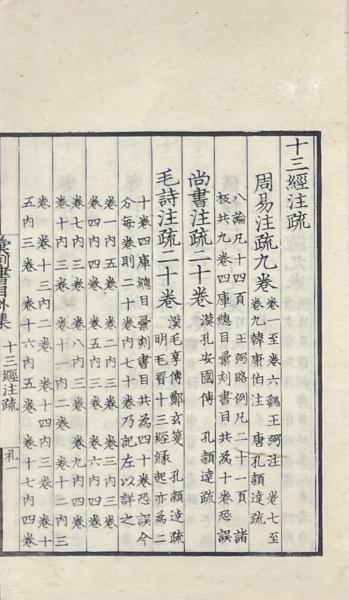 十三經注疏
周易注疏九卷
卷一至卷六魏王弼注 卷七至
卷九韓康伯注 唐孔穎達疏
八論凡十四頁 王弼略例凡二十一頁 諸
板共九卷四庫總目彙刻書目共為十卷恐誤
尚書注疏二十卷
漢孔安國傳 孔穎達疏
毛詩注疏二十卷
漢毛亨傳鄭玄箋 孔穎達疏
明毛晉十三經緣起亦為二
十卷四庫總目彙刻書目共為四十卷恐誤今
分每卷則二十卷內七十卷乃記左以詳之
卷一內五卷 卷二內三卷 卷三內三卷
卷四內四卷 卷五內三卷 卷六內四卷
卷七內三卷 卷八內三卷 卷九內四卷
卷十內三卷 卷十一內二卷 卷十二內三
卷 卷十三內二卷 卷十四內三卷 卷十
五內三卷 卷十六內五卷 卷十七內四卷
彙刻書目外集 十三經注疏 礼